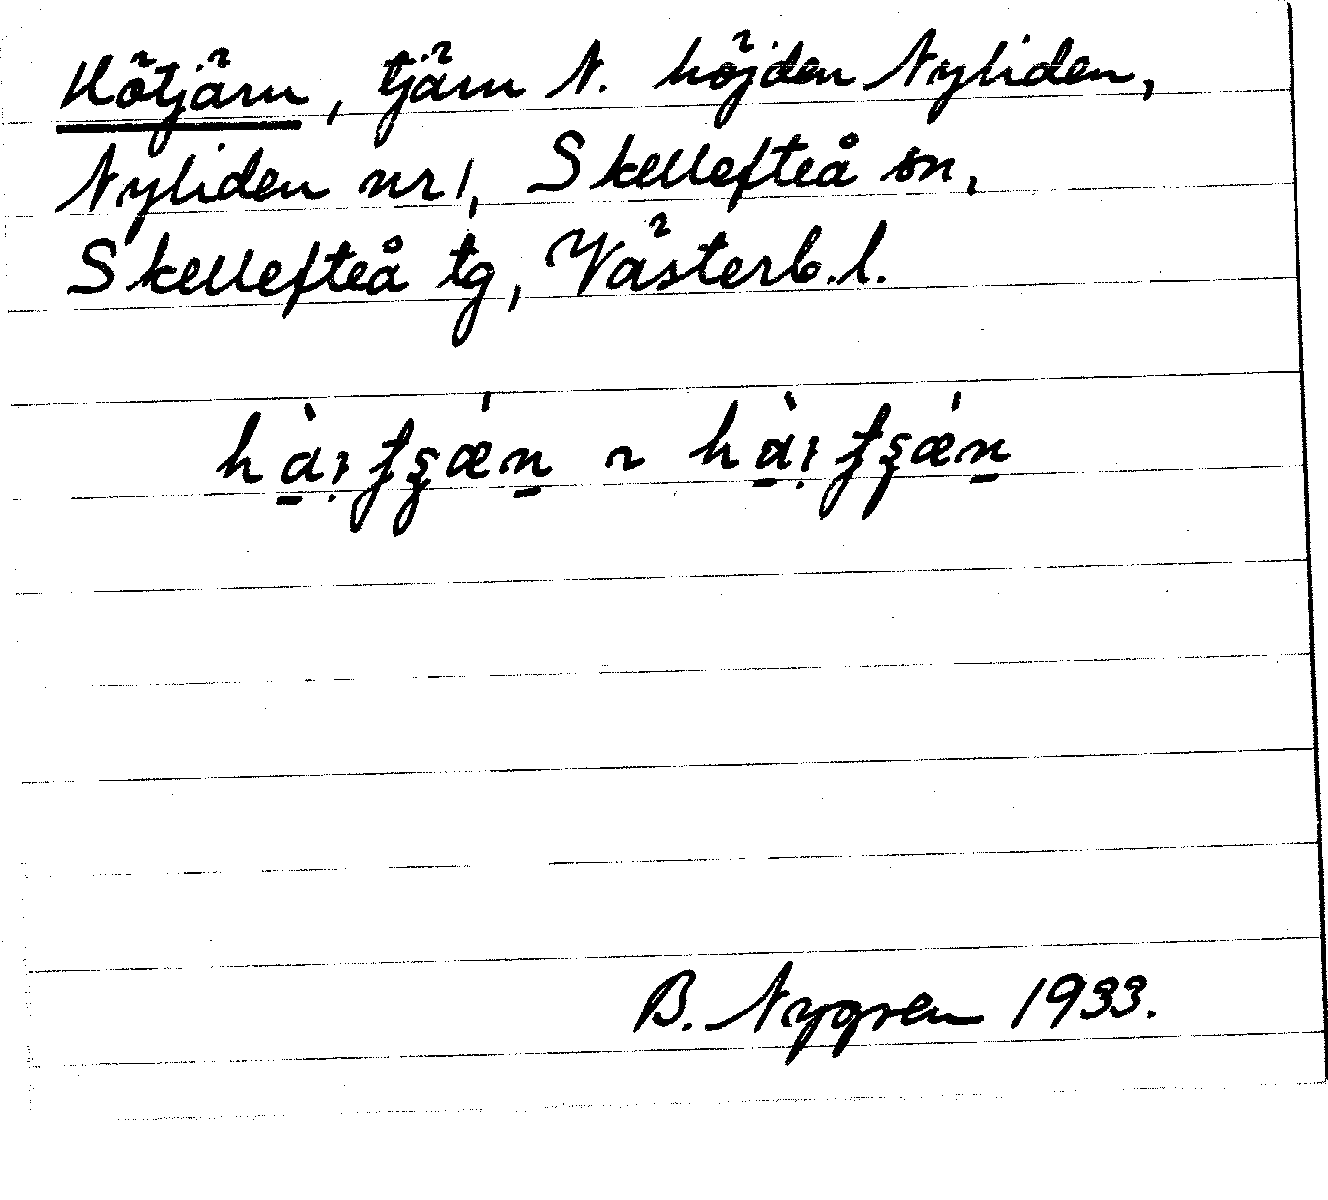 Hötjärn, tjärn N. höjden Nyliden,
Nyliden nr 1, Skellefteå sn,
Skellefteå tg, Västerb. l.
B. Nygren 1933.